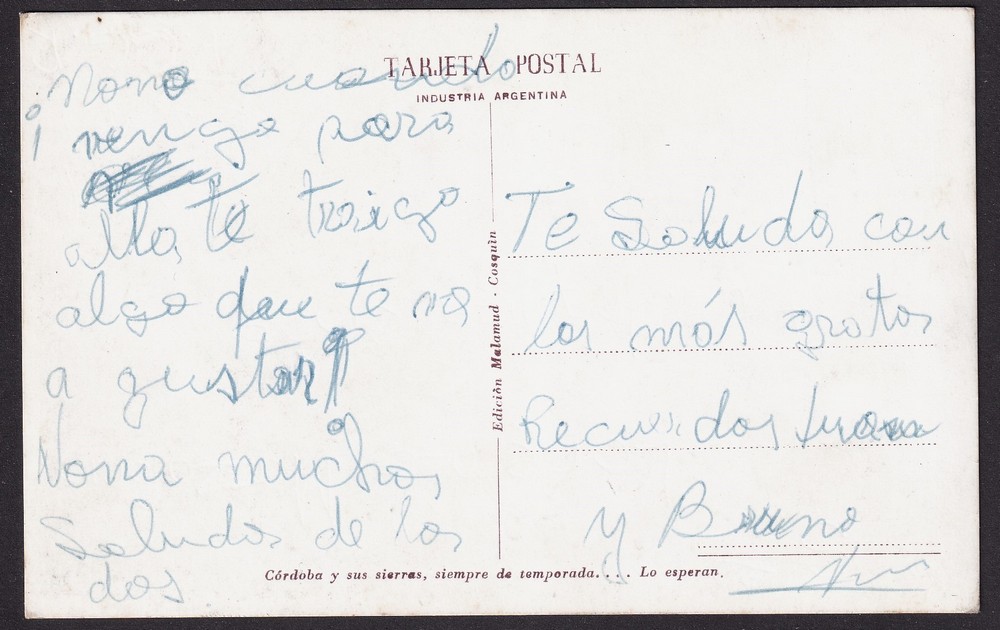 TARJETA POSTAL
INDUSTRIA ARGENTINA
Nono cuando
¡ vengo para
alla te traigo
algo que te va
a gustar!
Nona muchos
Saludos de los
dos
Edición Malamud - Cosquín
Te Saluda con
los más gratos
Recuerdos
y Bruno
Córdoba y sus sierras, siempre de temporada.... Lo esperan.